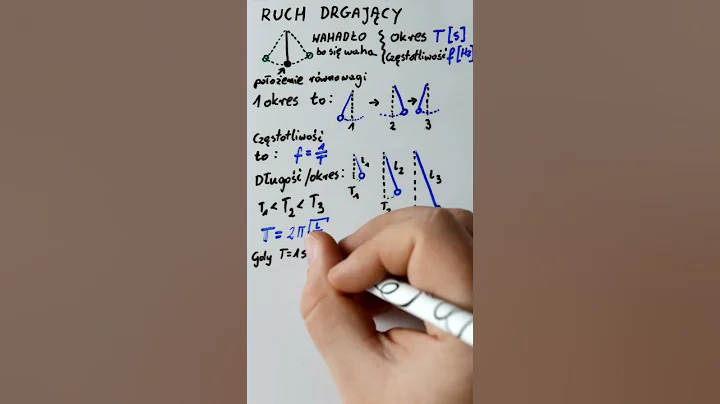 RUCH DRGAJĄCY
WAHADŁO { okres T [s]
bo się waha { częstotliwość f [Hz]
położenie równowagi
1 okres to: → →
1 2 3
Częstotliwość
to: f = 1/T
Długość/okres: l₁ l₂ l₃
T₁ T₂
T₁ < T₂ < T₃
T = 2π√l
Gdy T=1s